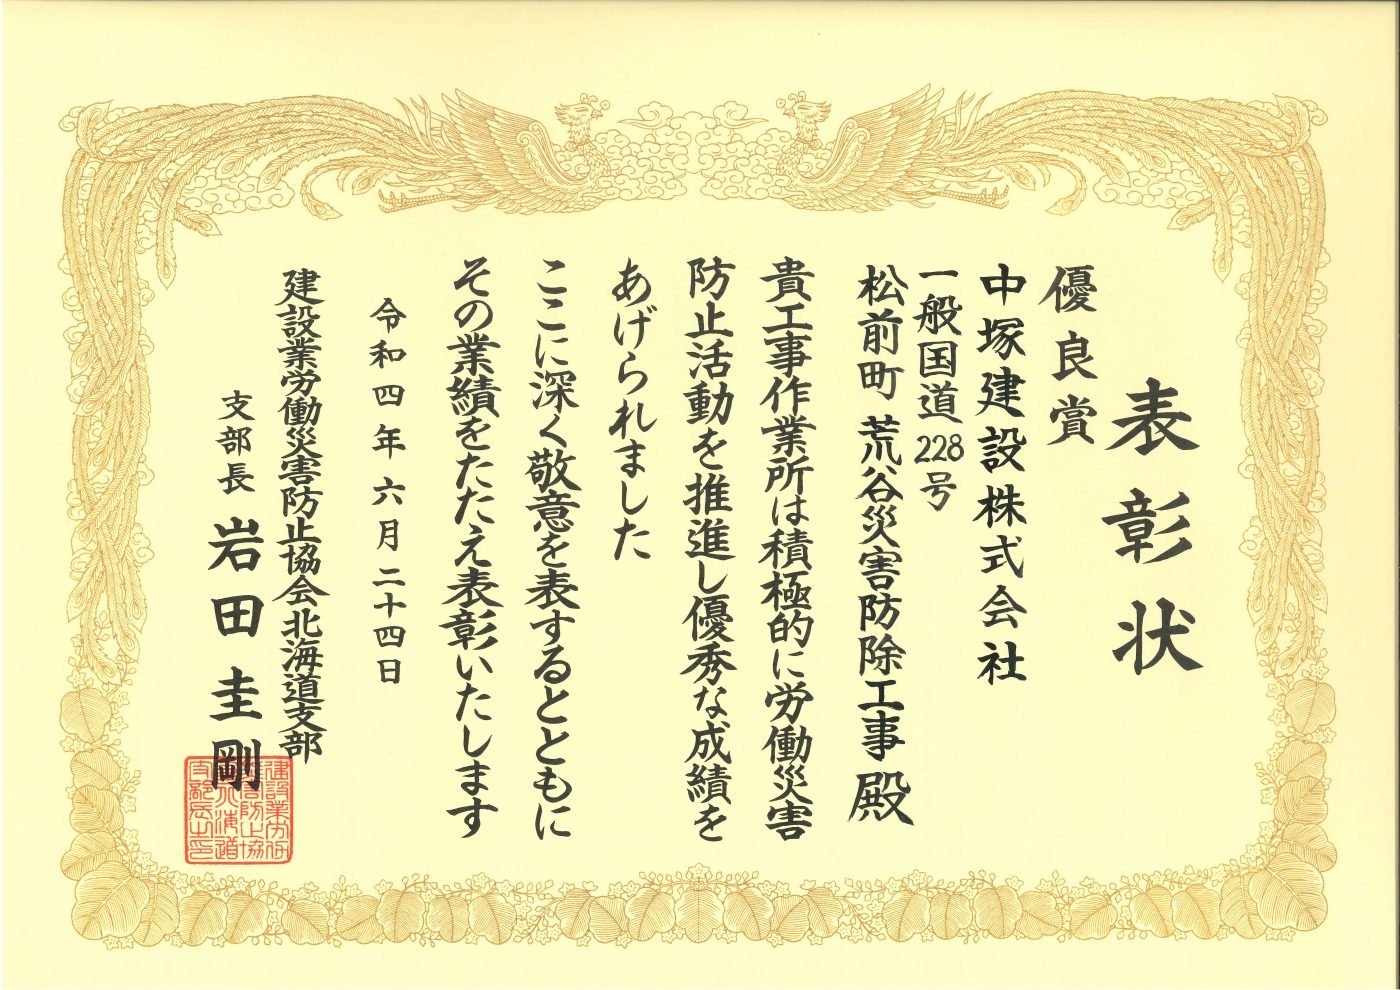 表彰状
優良賞
中塚建設株式会社
一般国道228号
松前町 荒谷災害防除工事 殿
貴工事作業所は積極的に労働災害
防止活動を推進し優秀な成績を
あげられました
ここに深く敬意を表するとともに
その業績をたたえ表彰いたします
令和四年六月二十四日
建設業労働災害防止協会北海道支部
支部長 岩田圭剛